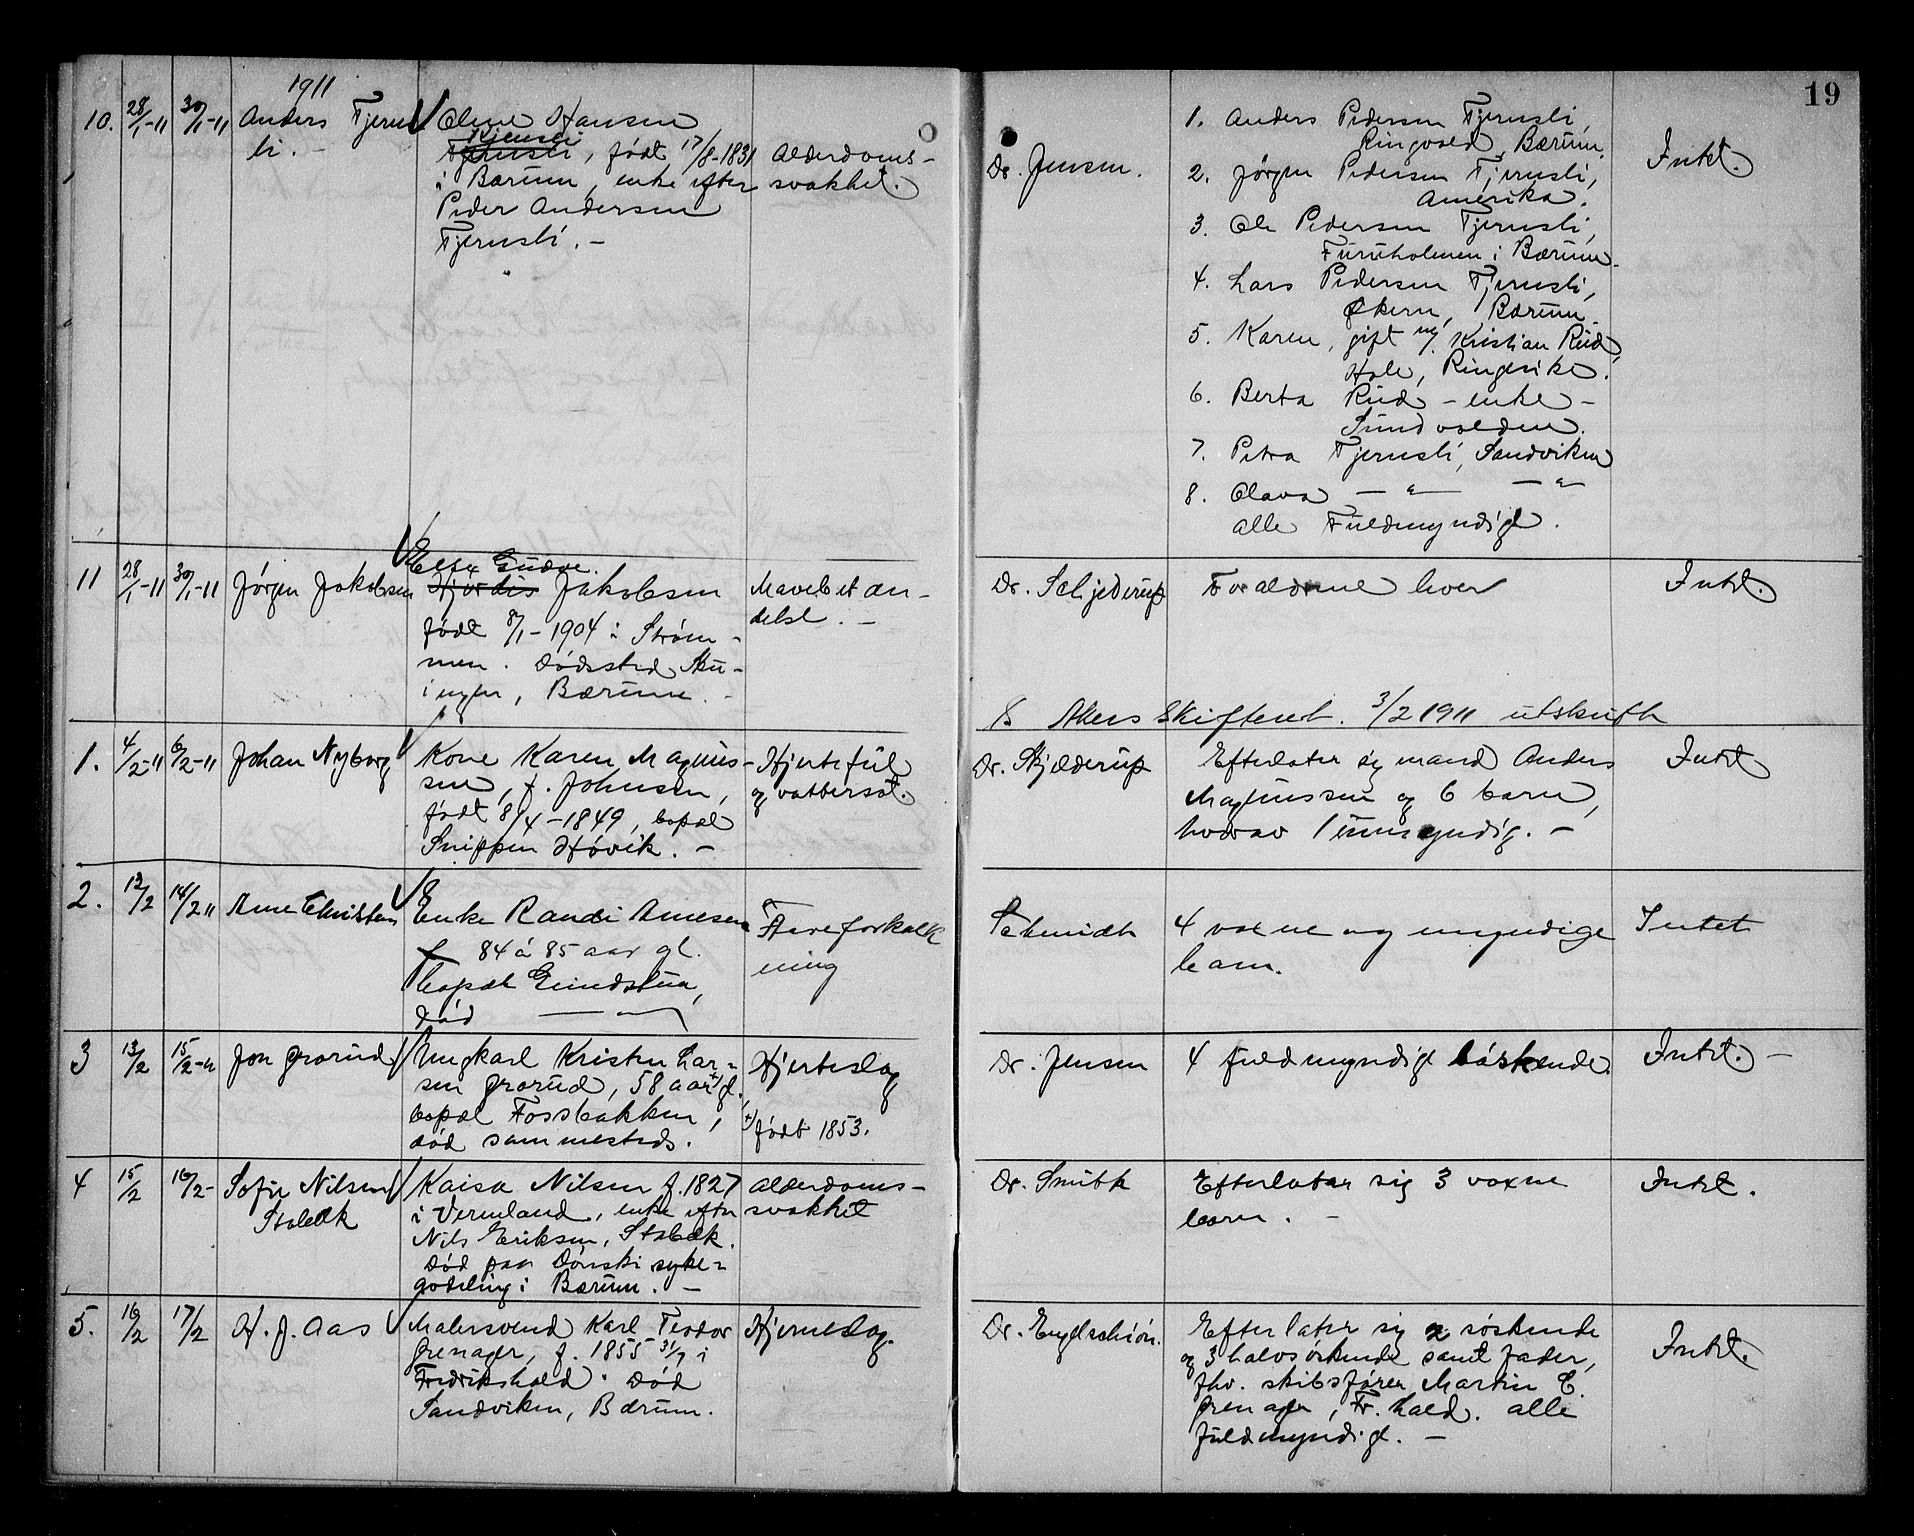 19
1911
10. 28/1-11 30/1-11 Anders Fjerns
li. -
Oline Hansen
Kjensli
Fjernsli, født 17/8-1831
i Bærum, enke efter
Peder Andersen
Fjernsli. -
Alderdoms-
svakhet.
Dr. Jensen.
1. Anders Pedersen Fjernsli,
Ringvold, Bærum.
2. Jørgen Pedersen Fjernsli,
Amerika.
3. Ole Pedersen Fjernsli,
Furuholmen i Bærum.
4. Lars Pedersen Fjernsli,
Økern, Bærum.
5. Karen, gift m/ Kristian Rud,
Hole, Ringerike.
6. Berta Rud - enke -
Sundvolden.
7. Petra Fjernsli, Sandviken
8. Olava — " — — " —
alle Fuldmyndige.
Intet.
11 28/1-11 30/1-11 Jørgen Jakobsen
Gudve.
Hjørdis Jakobsen
født 8/1-1904 i Strøm-
men. Dødssted Sku-
i Bærum. -
Mavebetæn-
delse. -
Dr. Schjelderup
Forældrene lever
Intet.
Akers Skifteret. 3/2 1911 utskrift
1. 4/2-11 6/2-11 Johan Nyborg
Kone Karen Magnus-
sen, f. Johnsen,
født 8/4-1849, bopæl
Snippen Høvik. -
Hjertefeil
og vattersot.
Dr. Skjelderup
Efterlater sig mand Anders
Magnussen og 6 barn,
hvorav 1 umyndig. -
Intet
2. 12/2 14/2 11 Arne Christen
Enke Randi Arnesen
84 à 85 aar gl.
bopæl Grindstua,
død — " —
Aareforkalk
ning
Schmidt
4 voxne og myndige
barn.
Intet
3 13/2 15/2-11 Jon Grorud
Ungkarl Kristen Lar-
sen Grorud, 58 aar +) gl.
bopæl Fossbakken,
død sammesteds.
Hjerteslag
+) født 1853.
Dr. Jensen
4 fuldmyndige søskende.
Intet. -
4 15/2 16/2- Sofie Nilsen
Stabæk
Kaisa Nilsen f. 1827
i Vermland, enke efter
Nils Eriksen, Stabæk.
Død paa Dønski syke-
avdeling i Bærum. -
Alderdoms-
svakhet
Dr. Smith
Efterlater sig 3 voxne
barn. -
Intet.
5. 16/2 17/2 H. J. Aas
Malersvend Karl Teodor
Grenager, f. 1855 31/7 i
Fredrikshald. Død
Sandviken, Bærum.
Hjerneslag.
Dr. Engelschiøn.
Efterlater sig 2 søskende
og 3 halvsøskende samt Fader,
fhv. skibsfører Martin E.
Grenager, Fr.hald. alle
fuldmyndige. -
Intet.